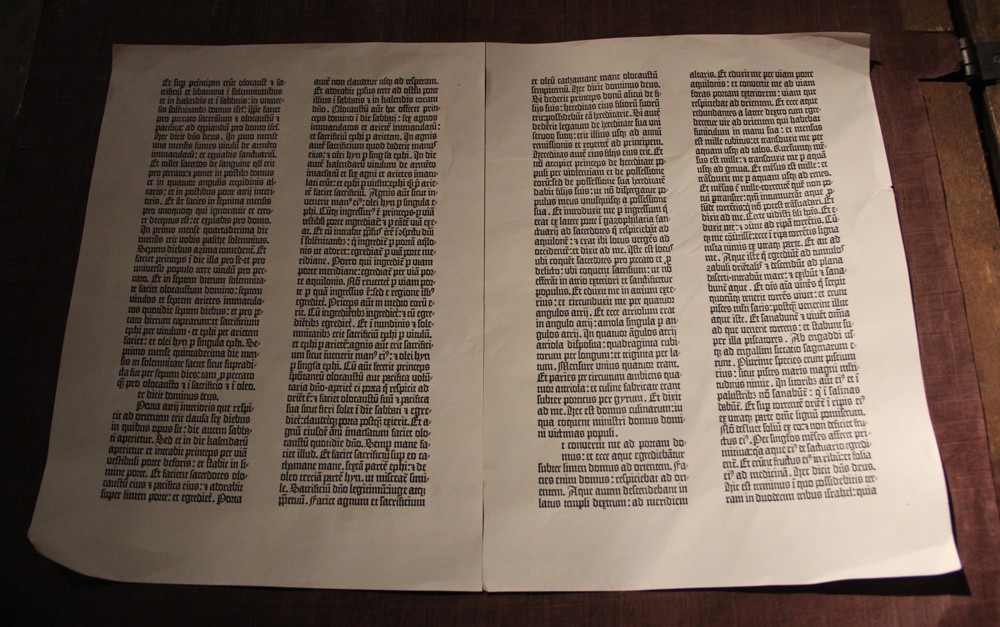 Et sup principem erūt olocausta ⁊ sa-
crificiū et libamina ī solemnitatibus
et in kalendis et ī sabbatis: in univer-
sis solemnitatibꝰ domus isrl̄. Ip̄e faciet
pro peccato sacrificium ⁊ olocaustū ⁊
pacifica: ad expiandū pro domo isrl̄.
Hec dicit dn̄s deus. In primo mense
una mensis sumes vitulū de armēto
immaculatū: et expiabis sanctuariū.
Et tollet sacerdos de sanguine qd̄ erit
pro peccato: ⁊ ponet in postibꝰ domus
et in quatuor angulis crepidinis al-
taris: et in postibus porte atrij interi-
oris. Et sic facies in septima mensis
pro unoquoqꝫ qui ignoravit et erro-
re deceptus est: et expiabis pro domo.
In primo mense quartadecima die
mensis erit vobis pasche solemnitas.
Septem diebus azima comedent̄. Et
faciet princeps ī die illa pro se et pro
universo populo terre vitulū pro pec-
cato. Et in septem dierum solemnita-
te faciet olocaustum domino: septem
vitulos et septem arietes immacula-
tos quotidie septem diebus: et pro pec-
cato hircum caprarum: et sacrificium
ephi per vitulum · et ephi per arietem
faciet: et olei hyn ꝑ singula ephi. Se-
primo mense quintadecima die men-
sis in solemnitate faciet sicut supradi-
cta sūt per septem dies: tam ꝑ peccato
ꝗ̄ pro olocausto ⁊ ī sacrificio ⁊ ī oleo.
ec dicit dominus deus.
Porta atrij interioris que respi-
cit ad orientem erit clausa sex diebus
in quibus opus fit: die autem sabba-
ti aperietur. Sed et in die kalendarū
aperietur: et intrabit princeps per viā
vestibuli porte deforis: et stabit in li-
mine porte. Et facient sacerdotes olo-
caustū eiꝰ et pacifica eiꝰ: ⁊ adorabit
super limen porte: et egredietᷣ. Porta
autē non claudetur usqꝫ ad vesperam.
Et adorabit ppl̄us terre ad ostiū porte
illius ī sabbatis ⁊ in kalendis coram
dn̄o. Olocaustū aūt hoc offeret prin-
ceps domino ī die sabbati: sex agnos
immaculatos et arietē immaculatū:
et sacrificiū ephi ꝑ arietem. In agnis
autē sacrificium quod dederit manꝰ
eius: ⁊ olei hyn ꝑ singla ephi. In die
autē kalendarū vitulum de armēto
immaculatū et sex agni et arietes imma-
culati erūt: et ephi ꝑ vitulū · ephi qꝫ ꝑ arie-
tē faciet sacrificiū. Agnis aūt sicut in-
venerit manꝰ eiꝰ: ⁊ olei hyn ꝑ singula e-
phi. Cūqꝫ ingressurꝰ ē princeps · ꝑ viā
vestibuli porte ingrediatᷣ: ⁊ ꝑ eādē viā exe-
at. Et cū intrabit ppl̄us terre ī ꝯspectu dn̄i
ī solemnitatibꝰ: qui ingreditᷣ ꝑ portā aq̄lo-
nis ut adoret: egrediatᷣ ꝑ viā porte me-
ridiane. Porro qui ingreditᷣ ꝑ viam
porte meridiane: egrediat̄ per viā por-
te aquilonis. Nō revertet̄ ꝑ viam por-
te ꝑ quā ingressus ē: sed e regione illiꝰ
egredietᷣ. Princeps aūt in medio eorū e-
rit. Cū ingrediētibꝰ ingrediet̄: ⁊ cū egre-
diētibꝰ egredietᷣ. Et ī nundinis ⁊ sole-
mnitatibꝰ erit sacrificiū ephi ꝑ vitulū.
et ephi ꝑ arietē: agnis aūt erit sacrifici-
um sicut invenerit manꝰ eiꝰ: ⁊ olei hyn
ꝑ singla ephi. Cū aūt fecerit princeps
spōtaneū olocaustū aut pacifica volū-
taria dn̄o · aperiet̄ ei porta q̄ respicit ad
oriētē: ⁊ faciet olocaustū suū ⁊ pacifica
sua sicut fieri solet ī die sabbati: ⁊ egre-
dietᷣ: claudeturqꝫ porta postꝗ̄ exierit. Et a-
gnū eiusdē anni imaculatum faciet olo-
caustū quotidie dn̄o. Semp mane fa-
ciet illud. Et faciet sacrificiū sup eo ca-
thamane mane. sextā partē ephi: ⁊ de
oleo terciā partē hyn. ut misceat simi-
le. Sacrificiū dn̄o legitimū: iuge atqꝫ
ꝑpetuū. Faciet agnum et sacrificium
et oleū cathamane mane olocaustū
sempiternū. Hec dicit dominus deus.
Si dederit princeps domū alicui de fi-
lijs suis: hereditas eius filiorū suorū
erit: possidebūt eā hereditarie. Si autē
dederit legatum de hereditate sua uni
servorū suoꝝ: erit illius usqꝫ ad annū
remissionis et revertet̄ ad principem.
Hereditas autē eius filijs eius erit. Et
nō accipiet princeps de hereditate po-
puli per violentiam et de possessione
eorū: sed de possessione sua hereditatē
dabit filijs suis: ut nō dispergatur po-
pulus meus unusquisqꝫ a possessione
sua. Et introduxit me ꝑ ingressum q̄
erat ex latere porte ī gazophilatia san-
ctuarij ad sacerdotes q̄ respiciebāt ad
aquilonē: ⁊ erat ibi locus vergēs ad
occidentē: et dixit ad me. Iste est locꝰ
ubi coquēt sacerdotes pro peccato et ꝓ
delicto: ubi coquent sacrificium: ut nō
efferāt in atriū exterius et sanctificetur
populus. Et eduxit me in atrium exte-
rius: et circumduxit me per quatuor
angulos atrij. Et ecce atriolum erat
in angulo atrij: atriola singula ꝑ an-
gulos atrij. In quatuor āgulos atrij
atriola disposita: quadraginta cubi-
torum per longum: et triginta per la-
tum. Mensure unius quatuor erant.
Et paries per circuitum ambiens qua-
tuor atriola: et culine fabricate erant
subter porticus per gyrum. Et dixit
ad me. Hec est domus culinarum: in
qua coquent ministri domus domi-
ni victimas populi.
t convertit me ad portam do-
mus: et ecce aque egrediebātur
subter limen domus ad orientem. Fa-
cies enim domus: respiciebat ad ori-
entem. Aque autem descendebant in
latus templi dextrum: ad meridiem
altaris. Et eduxit me per viam porte
aquilonis: et convertit me ad viam
foras portam exteriorem: viam que
respiciebat ad orientem. Et ecce aque
redundantes a latere dextro cum egre-
deretur vir ad orientem qui habebat
funiculum in manu sua: et mensus
est mille cubitos: et traduxit me per
aquam usqꝫ ad talos. Rursumqꝫ mē-
sus est mille: ⁊ transduxit me ꝑ aquā
usqꝫ ad genua. Et mēsus est mille: et
trāsduxit me ꝑ aquam usqꝫ ad renes.
Et mēsus ē mille · torrentē quē non po-
tui pertransire: qm̄ intumuerāt aque ꝓ-
fūde torrētis: q̄ nō potest trāsvadari. Et
dixit ad me. Certe vidisti fili hoīs. Et e-
duxit me: ⁊ ꝯvertit ad ripā torrētis. Cū-
qꝫ me ꝯvertissē: ecce ī ripa torrētis ligna
multa nimis ex utraqꝫ parte. Et ait ad
me. Aque iste q̄ egrediūtᷣ ad tumulos
zabuli oriētalꝭ ⁊ descēdunt ad plana
deserti · intrabūt mare: ⁊ exibūt ⁊ sana-
bunt̄ aque. Et oīs aīa vivēs q̄ serpit
quocūqꝫ venerit torrēs vivet: et erunt
pisces multi satis: postꝗ̄ venerint illuc
aque iste. Et sanabunt̄ ⁊ vivēt omīa
ad que venerit torrens: et stabunt su-
per illa piscatores. Ab engaddi us-
qꝫ ad engallim siccatio sagenarum e-
rit. Plurime species erunt pisciurn
eius: sicut pisces maris magni mul-
titudinis nimie. In litoribꝰ aut̄ eiꝰ et ī
palustribꝰ nō sanabūt̄: q̄ ī salinas
dabūt̄. Et sup torrentē oriet̄ ī ripis eiꝰ
ex utraqꝫ parte omē lignū pomiferum.
Nō defluet foliū ex eo: ⁊ non deficiet fru-
ctus eiꝰ. Per singlos mēses afferet pri-
mitiua: qꝛ aque eiꝰ de sāctuario egredi-
ent̄. Et erunt fructus eiꝰ in cibū: et folia
eiꝰ ad medicinā. Hec dicit dn̄s deus.
Hic est terminus ī quo possidebitis ter-
ram in duodecim tribus israhel: quia